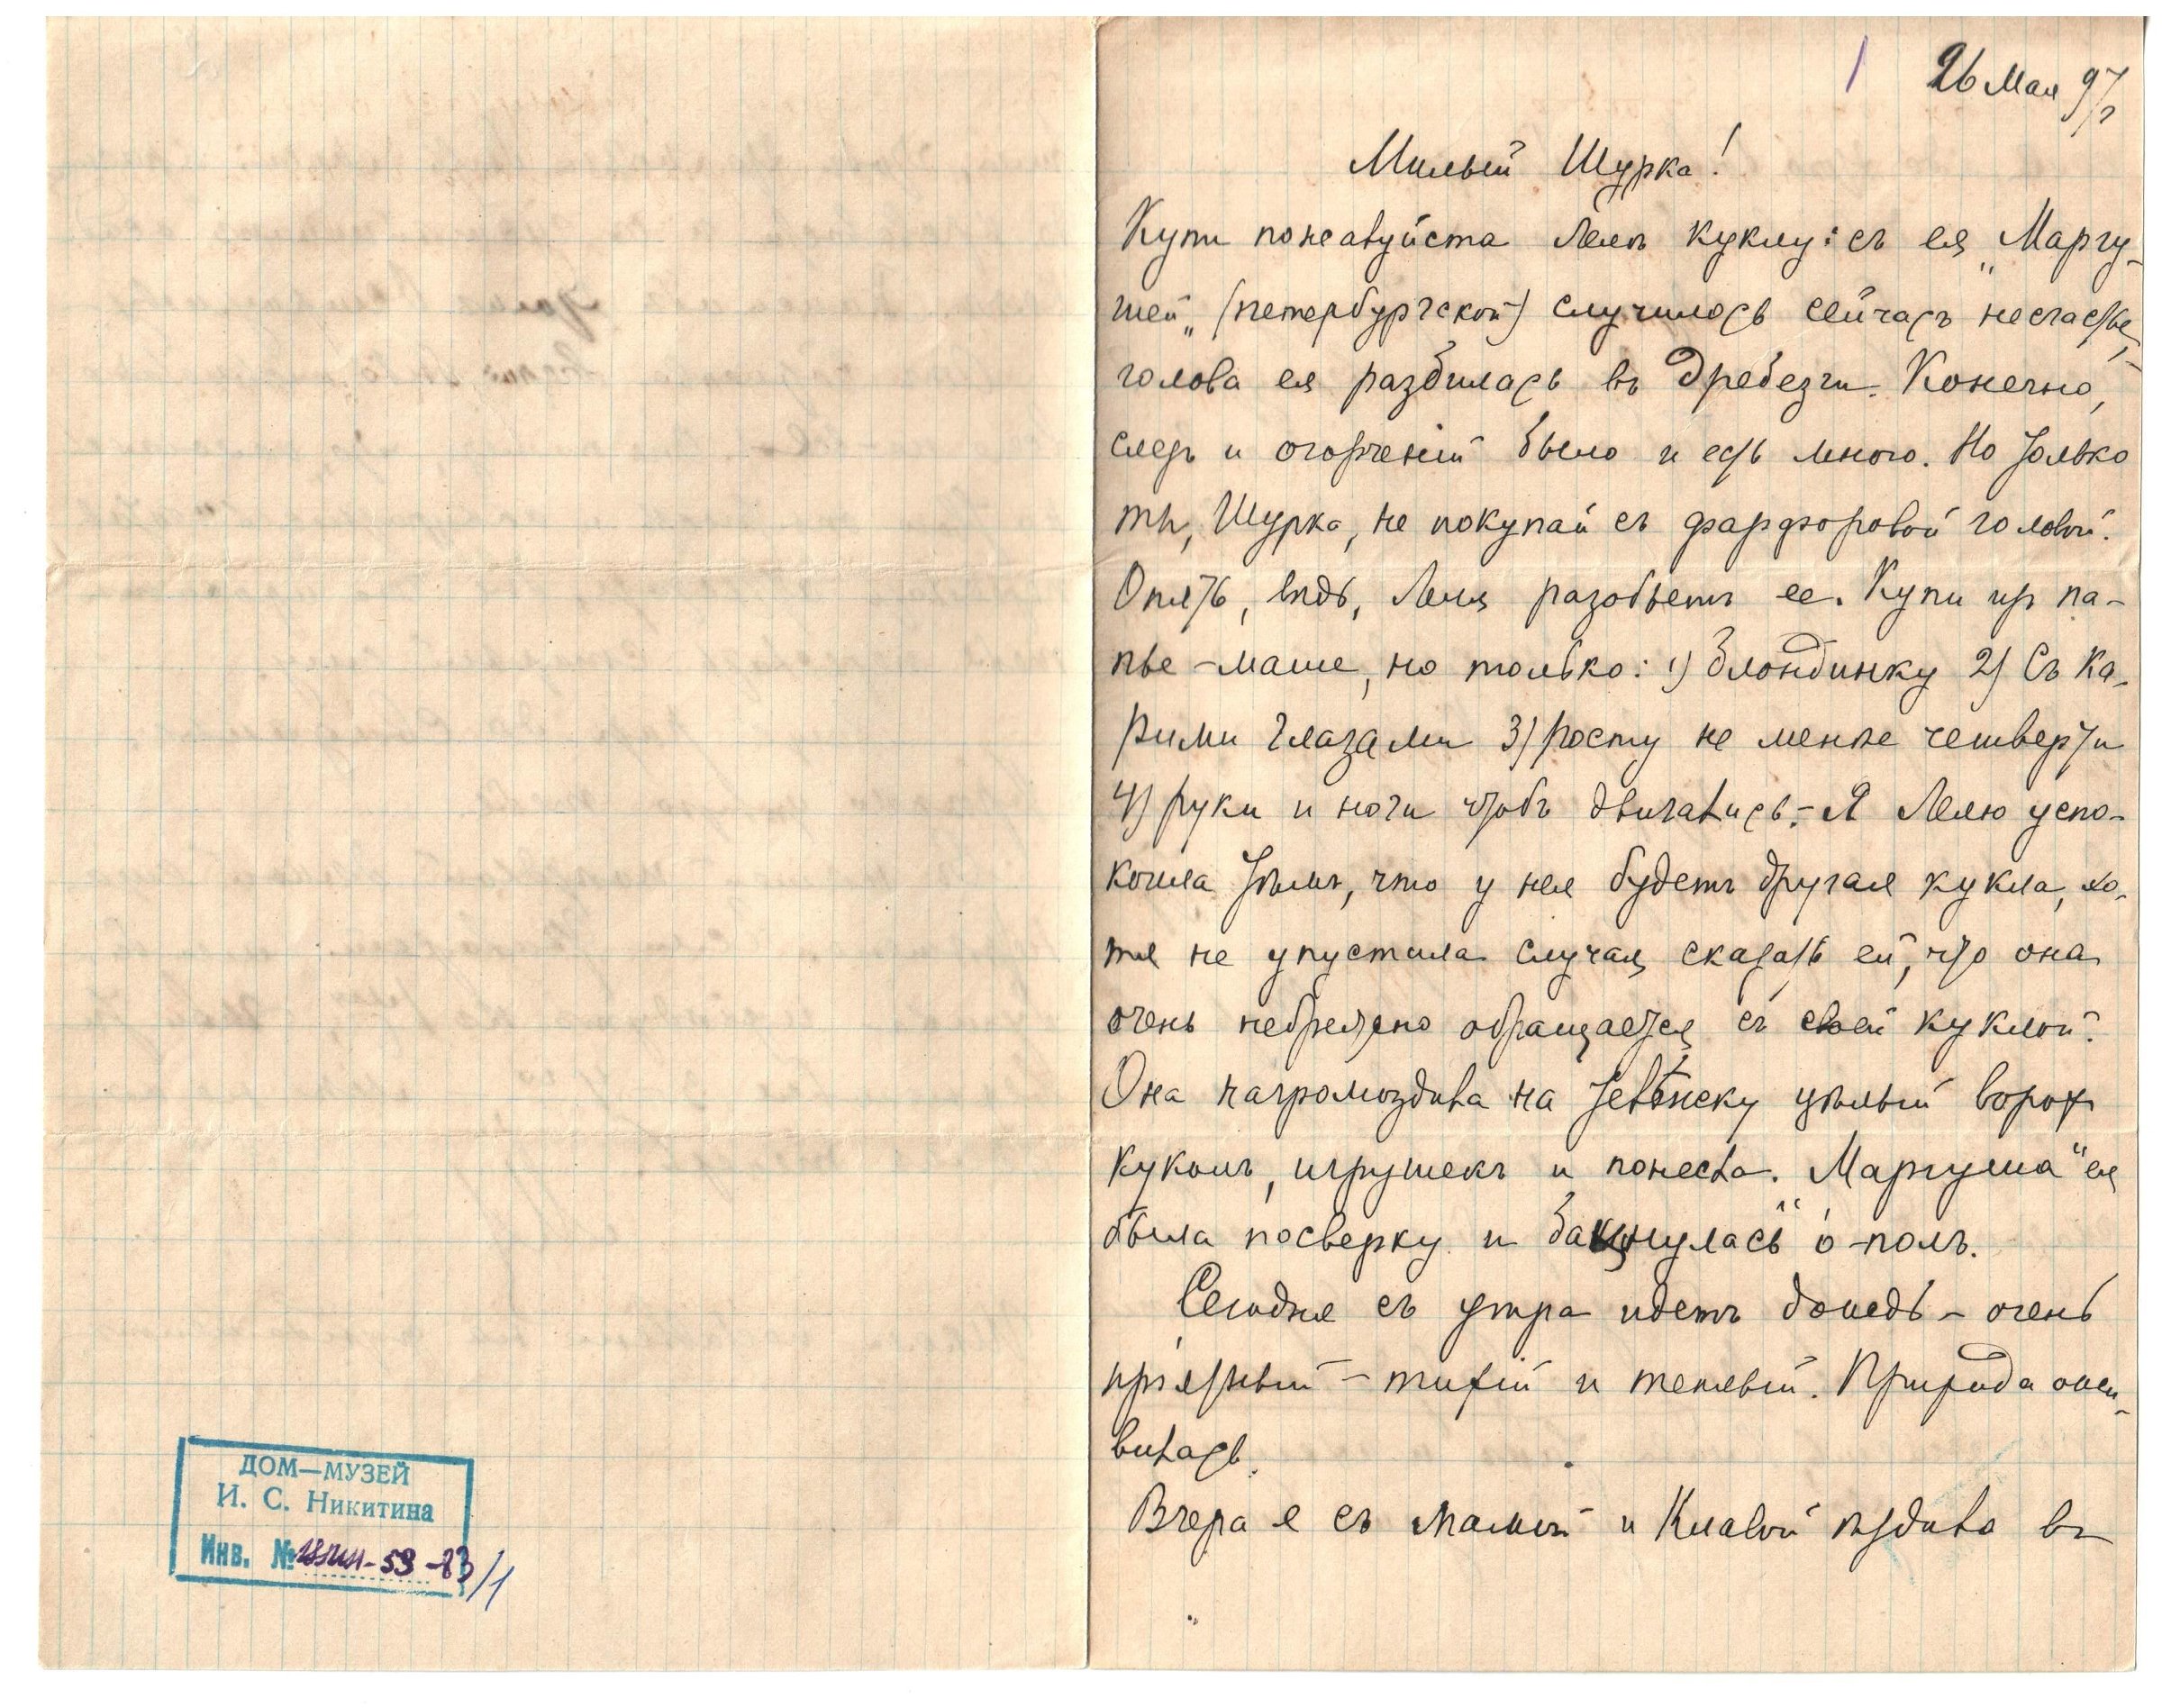 ДОМ—МУЗЕЙ
И. С. Никитина
Инв. № 59-83/1
1 26 Мая 97 г
Милый Шурка!
Купи пожалуйста Лелѣ куклу: съ ея „Маргу-
шей„ (петербургской) случилось сейчасъ несчастье,
голова ея разбилась въ дребезги. Конечно,
слезъ и огорченій было и есть много. Но только
ты, Шурка, не покупай съ фарфоровой головой.
Опять, вѣдь, Леля разобьетъ ее. Купи изъ па-
пье-маше, но только: 1) Блондинку 2) Съ ка-
рими глазами 3) росту не менѣе четверти
4) руки и ноги чтобъ двигались.- Я Лелю успо-
коила тѣмъ, что у нея будетъ другая кукла, хо-
тя не упустила случая сказать ей, что она
очень небрежно обращается съ своей куклой.
Она нагромоздила на телѣжку цѣлый ворохъ
куколъ, игрушекъ и понесла. „Маргуша" ея
была посверху и бацнулась о-полъ.
Сегодня съ утра идетъ дождь - очень
пріятный - тихій и теплый. Природа ожи-
вилась.
Вчера я съ мамой и Клавой ѣздила въ